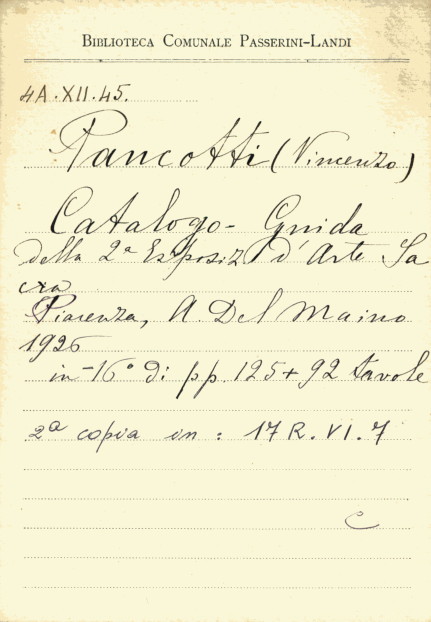 BIBLIOTECA COMUNALE PASSERINI-LANDI
4A.XII.45.
Pancotti (Vincenzo)
Catalogo-Guida
della 2ª Esposiz d'Arte Sa
cra
Piacenza, A. Del Maino
1926
in-16° di pp. 125+92 tavole
2ª copia in: 17R.VI.7
C